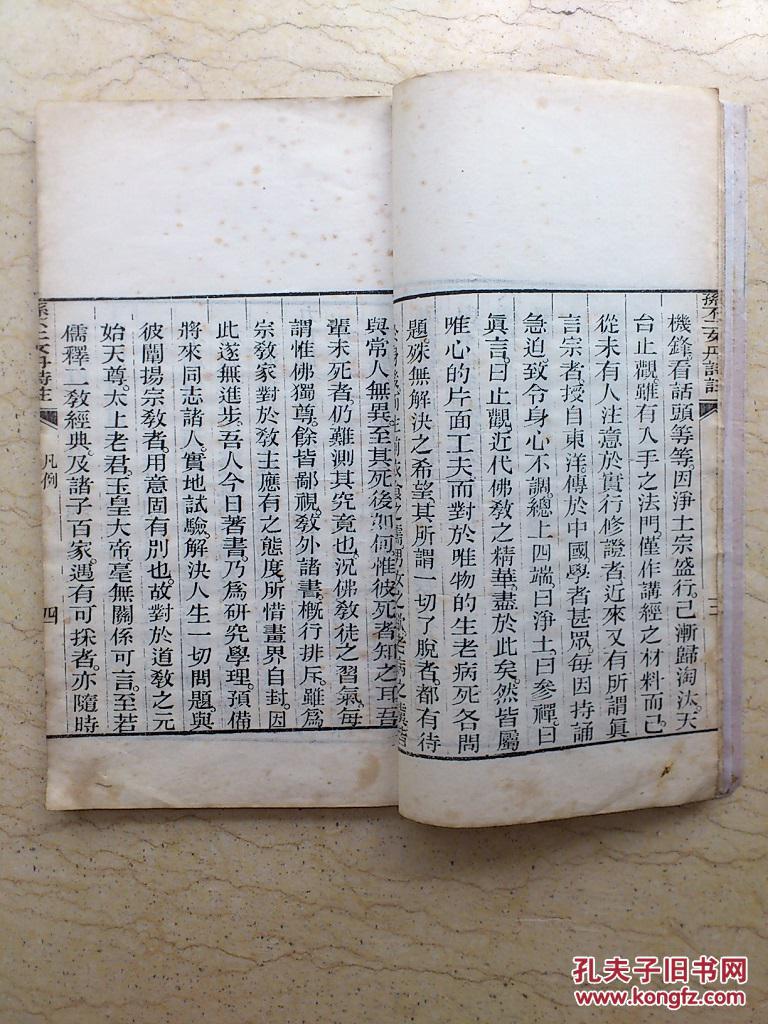 孫不二女丹詩註
三
機鋒。看話頭等等。因淨土宗盛行。已漸歸淘汰。天
台止觀。雖有入手之法門。僅作講經之材料而已。
從未有人注意於實行修證者。近來又有所謂真
言宗者。授自東洋。傳於中國。學者甚眾。每因持誦
急迫。致令身心不調。總上四端。曰淨土。曰參禪。曰
真言。曰止觀。近代佛教之精華。盡於此矣。然皆屬
唯心的片面工夫。而對於唯物的生老病死各問
題。殊無解決之希望。其所謂一切了脫者。都有待
與常人無異。至其死後如何。惟彼死者知之耳。吾
輩未死者。仍難測其究竟也。況佛教徒之習氣。每
謂惟佛獨尊。餘皆鄙視。教外諸書。概行排斥。雖為
宗教家對於教主應有之態度。所惜畫界自封。因
此遂無進步。吾人今日著書。乃為研究學理。預備
將來同志諸人。實地試驗。解決人生一切問題。與
彼闡揚宗教者。用意固有別也。故對於道教之元
始天尊。太上老君。玉皇大帝。毫無關係可言。至若
儒釋二教經典。及諸子百家。遇有可採者。亦隨時
孫不二女丹詩註
凡例
四
孔夫子旧书网
www.kongfz.com